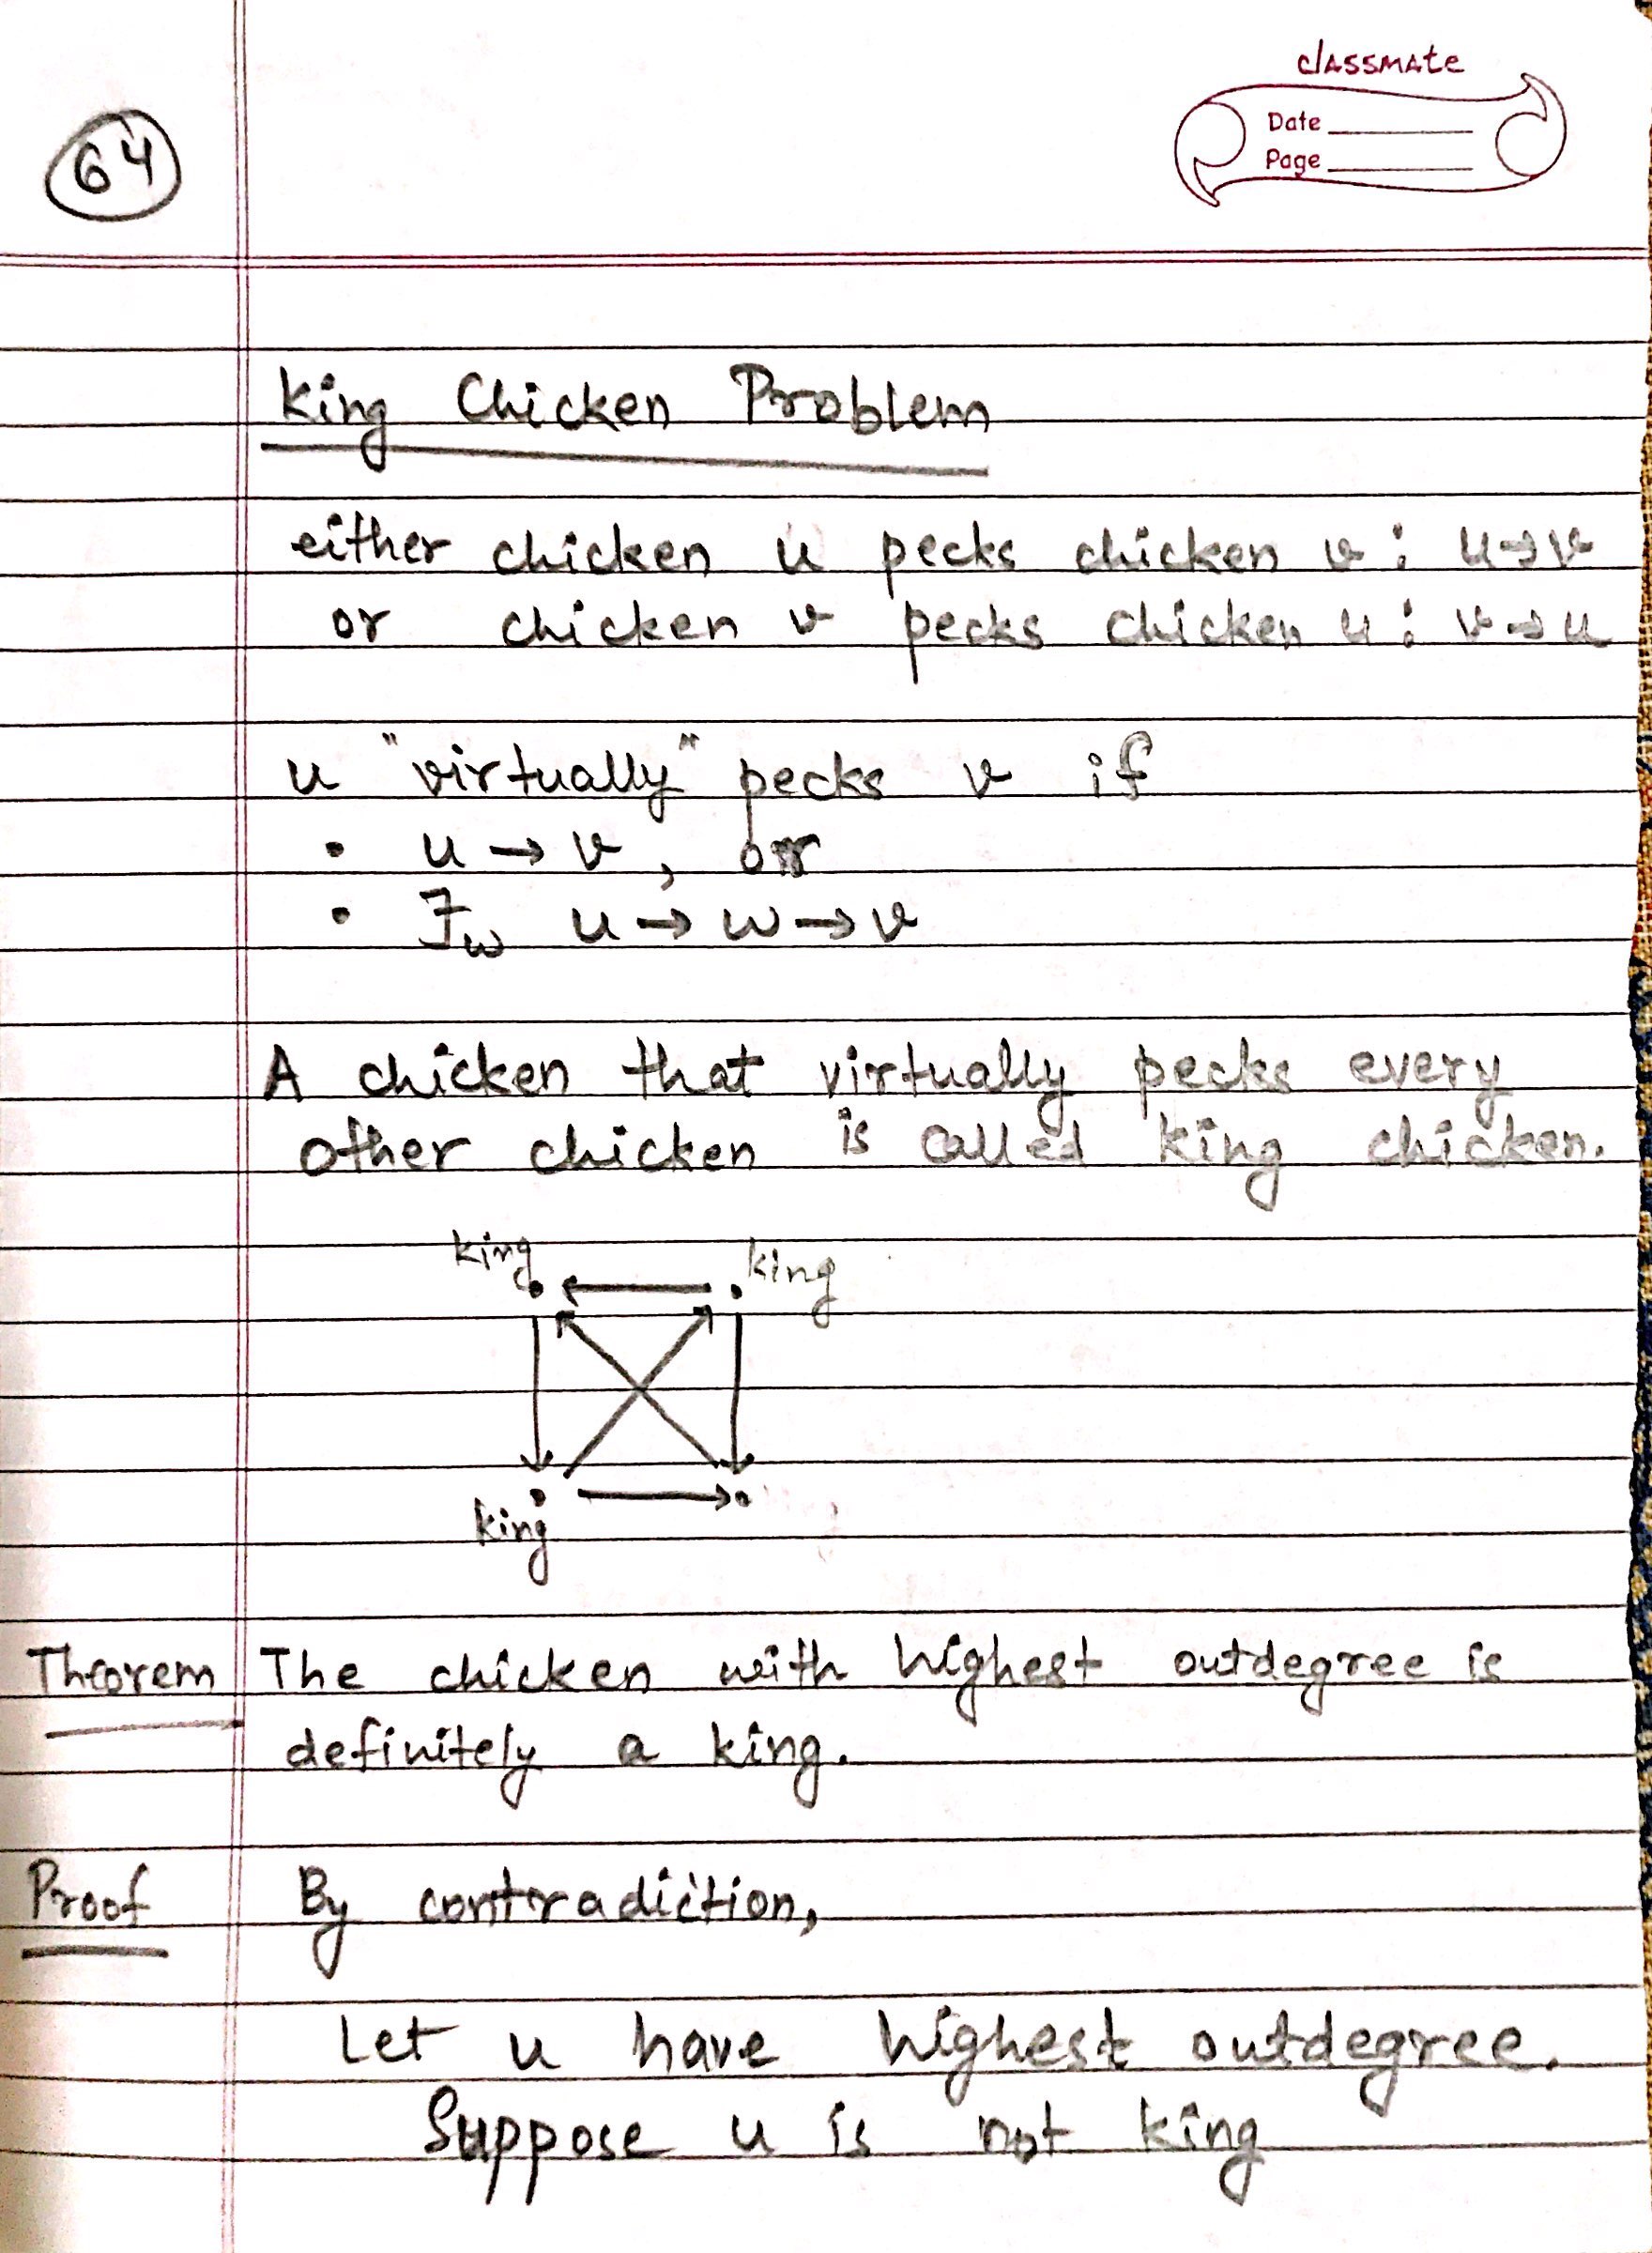 classmate
Date
Page
64
King Chicken Problem
either chicken u pecks chicken v : u→v
or chicken v pecks chicken u : v→u
u "virtually" pecks v if
• u → v, or
• ∃w u → w → v
A chicken that virtually pecks every
other chicken is called king chicken.
king king
king
Theorem The chicken with highest outdegree is
definitely a king.
Proof By contradiction,
Let u have highest outdegree.
Suppose u is not king